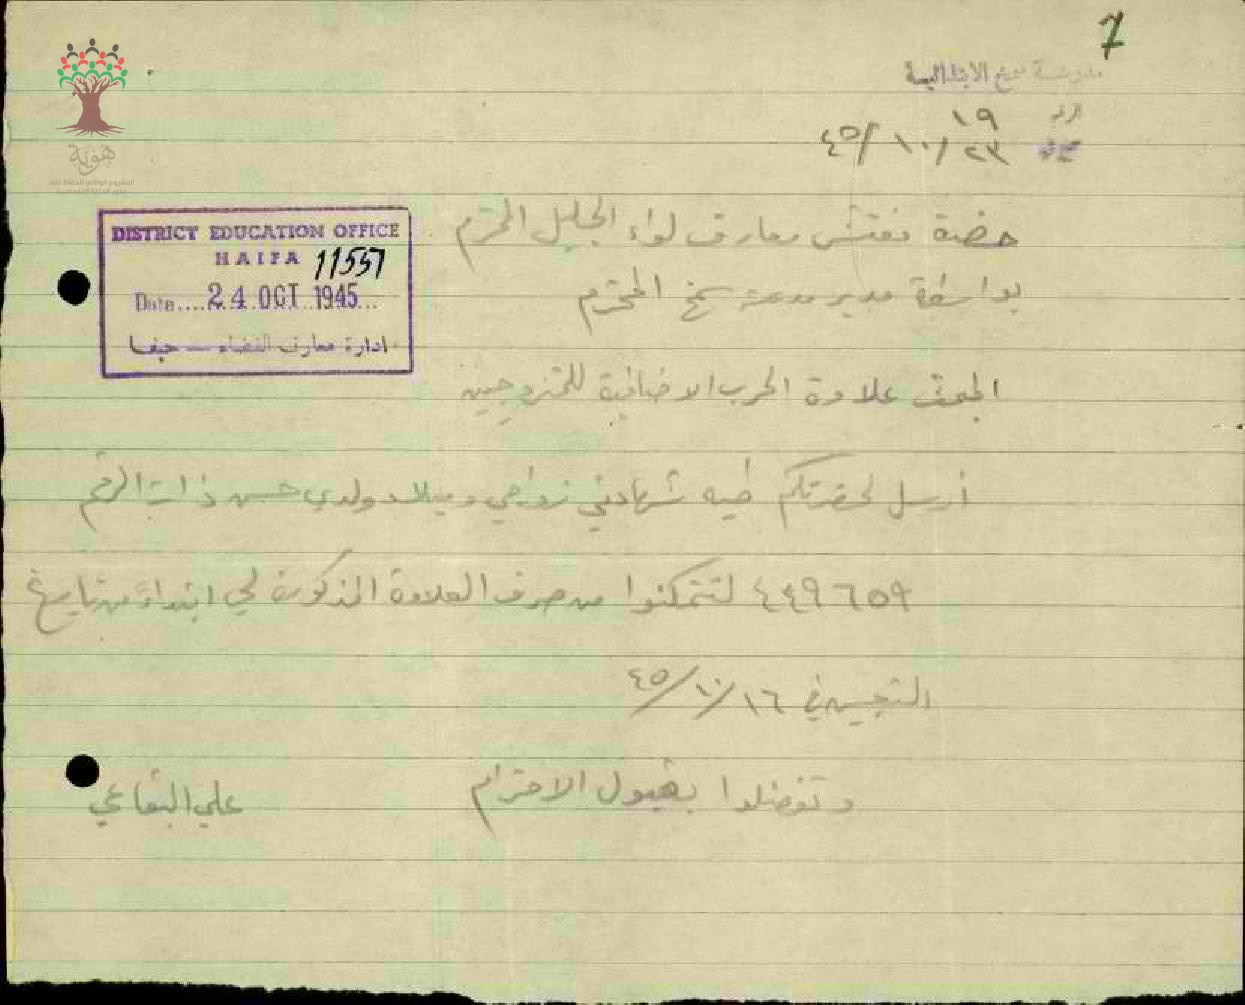 7
مدرسة سمخ الابتدائية
١٩
٢٣/١٠/٤٥
هوية
DISTRICT EDUCATION OFFICE
HAIFA 11557
Date....24 OCT 1945...
ادارة معارف القضاء — حيفا
حضرة مفتش معارف لواء الجليل المحترم
بواسطة مدير مدرسة سمخ المحترم
المبحث علاوة الحرب الاضافية للمتزوجين
أرسل لحضرتكم طيه شهادتي زواجي وميلاد ولدي حسن ذات الرقم
٤٤٩٦٥٩ لتتمكنوا من صرف العلاوة المذكورة لي ابتداءً من تاريخ
التعيين في ١٦/١٠/٤٥
وتفضلوا بقبول الاحترام
علي البقاعي